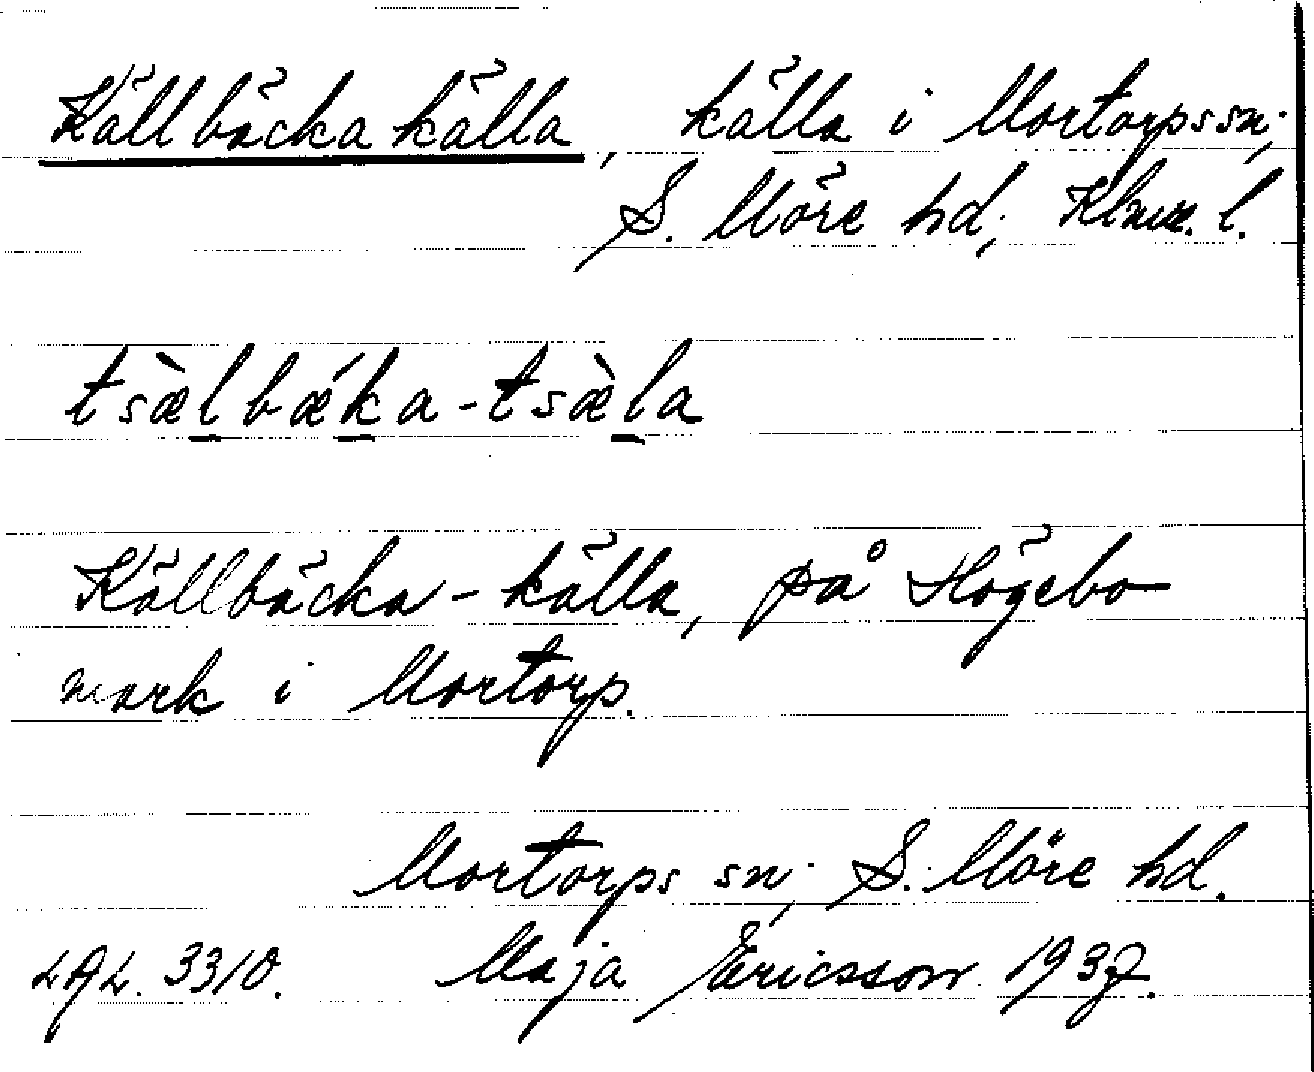 Källbäcka källa, källa i Mortorps sn;
S. Möre hd, Klmr. l.
tsæ̀lbǽka-tsæ̀la
Källbäcka-källa, på Högebo
mark i Mortorp.
Mortorps sn; S. Möre hd.
LAL. 3310. Maja Ericsson 1937.